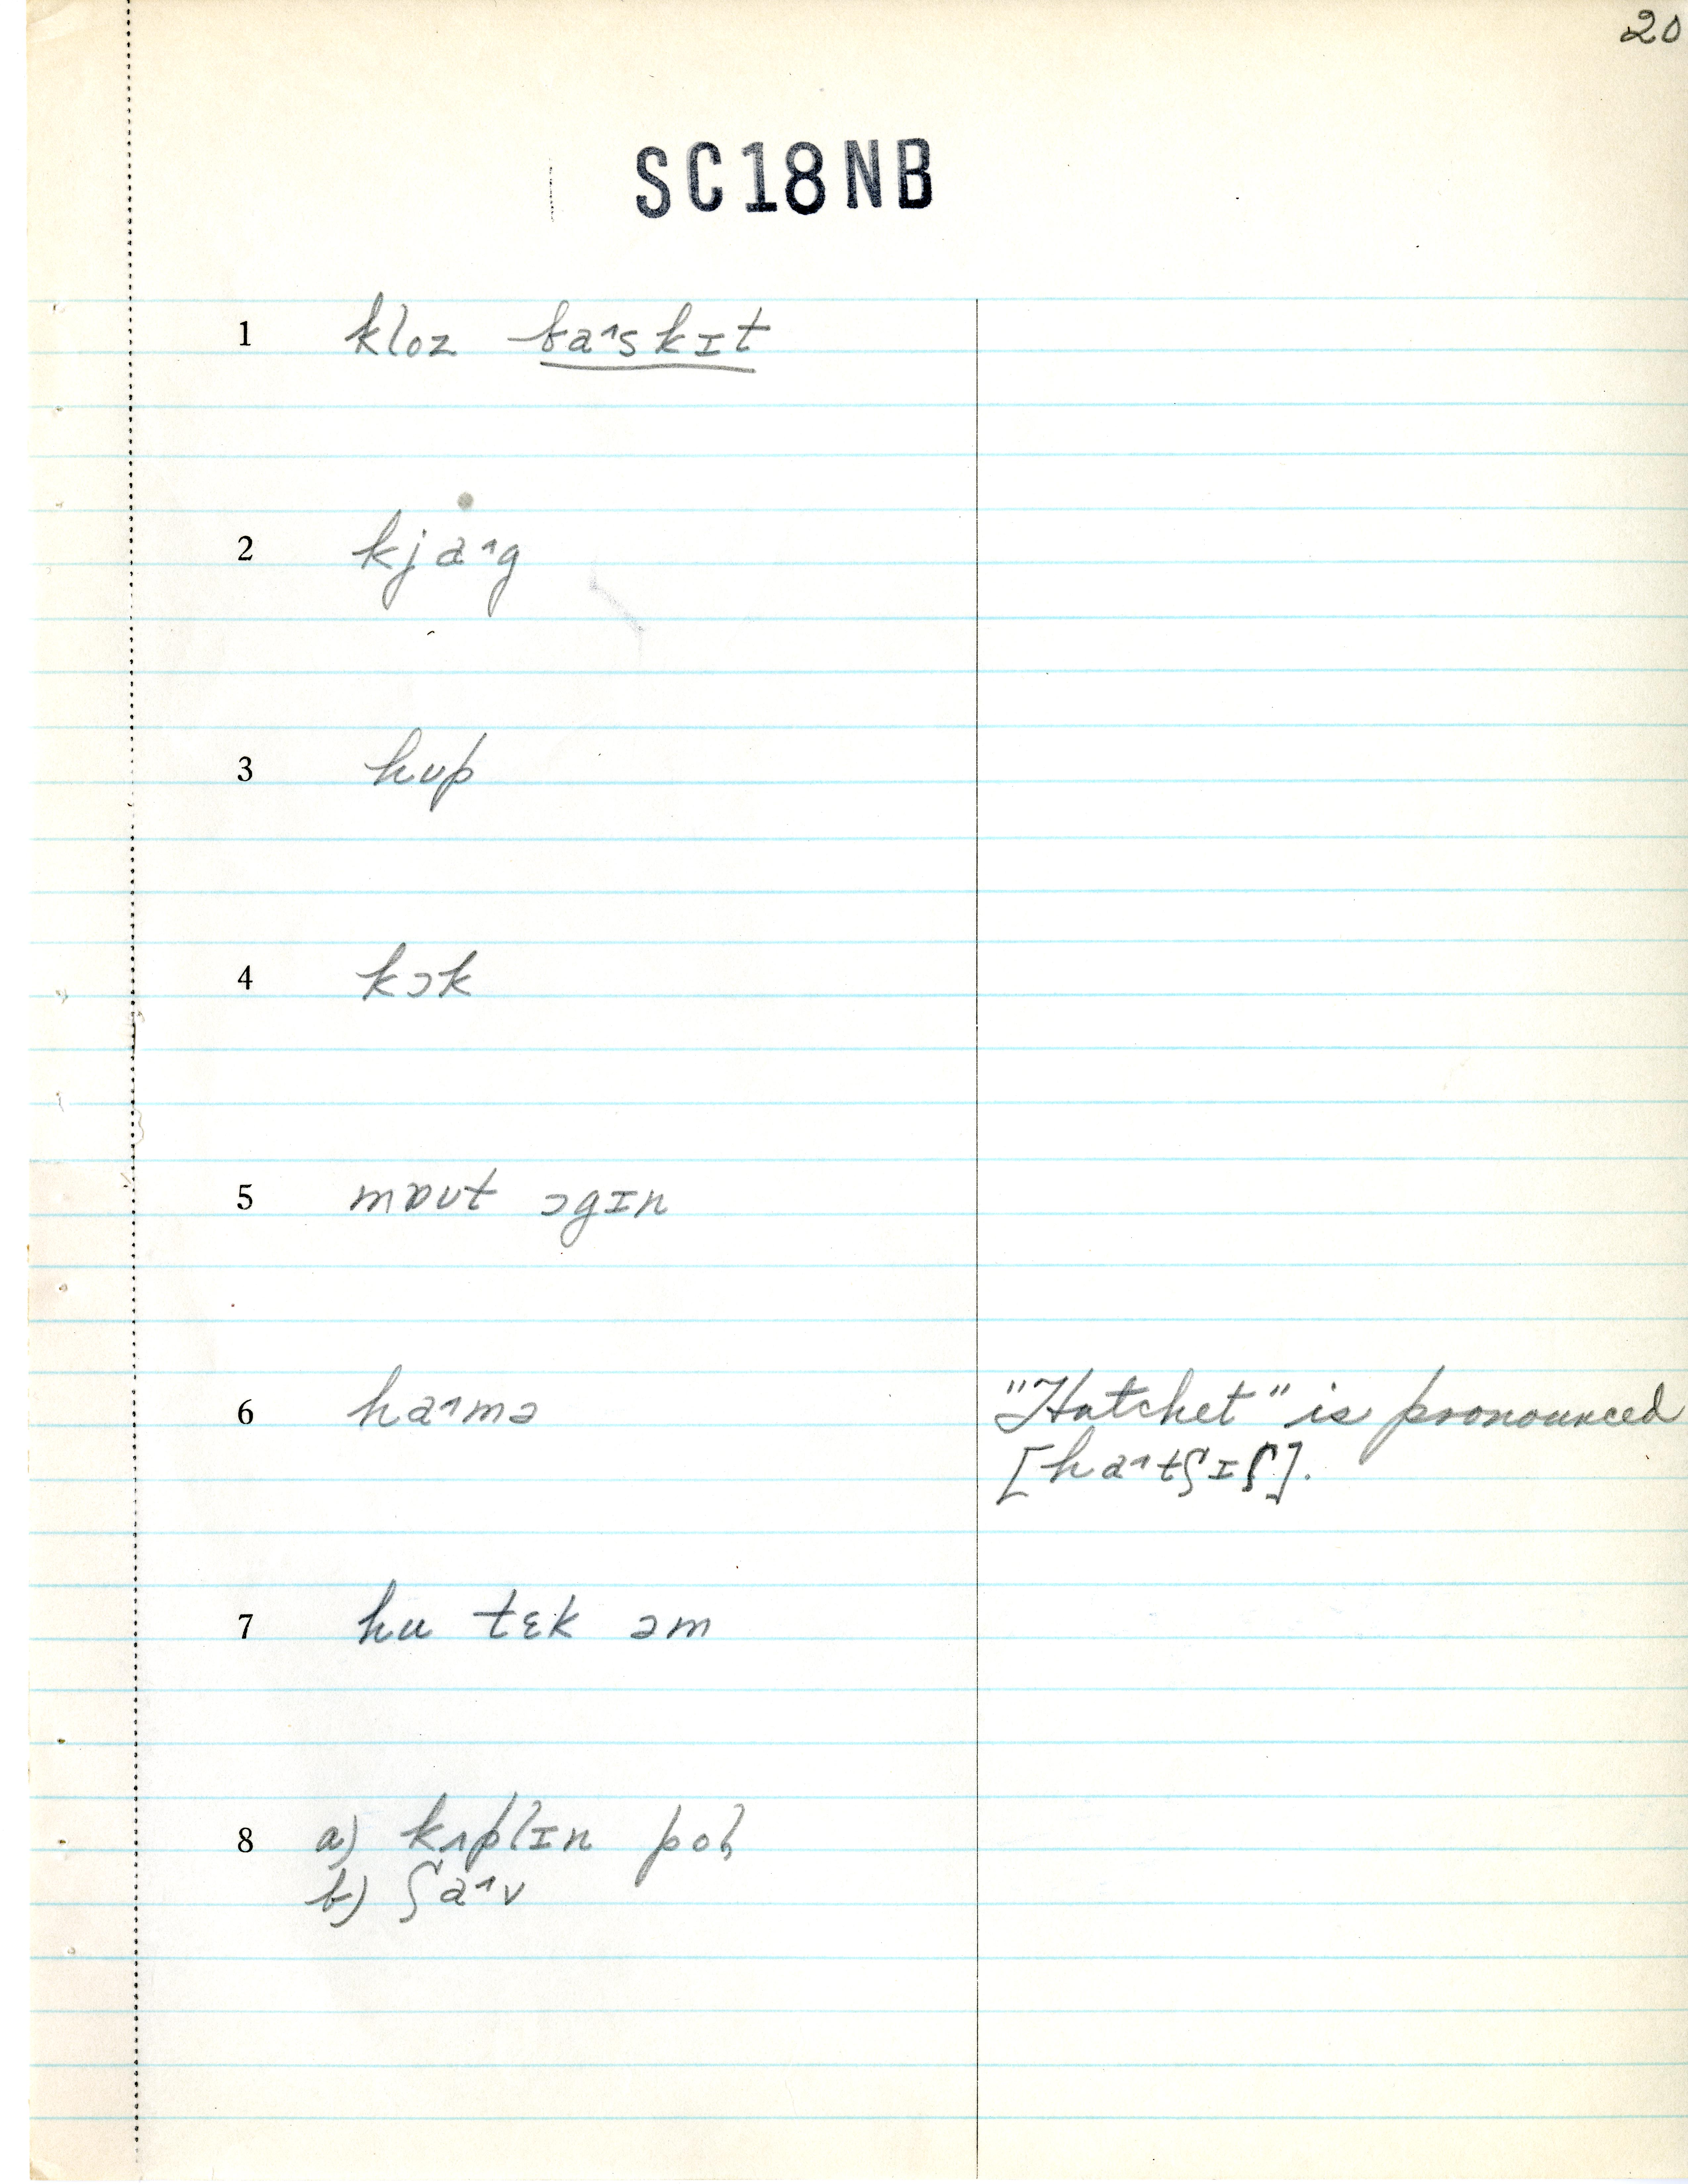 20
SC18NB
1 kloz ba˄skɪt
2 kja˄g
3 hʊp
4 kɔk
5 mɒʊt ɔgɪn
6 ha˄mə "Hatchet" is pronounced
[ha˄tʃɪʃ].
7 hu tɛk əm
8 a) kʌplɪn pol
b) ʃa˄v